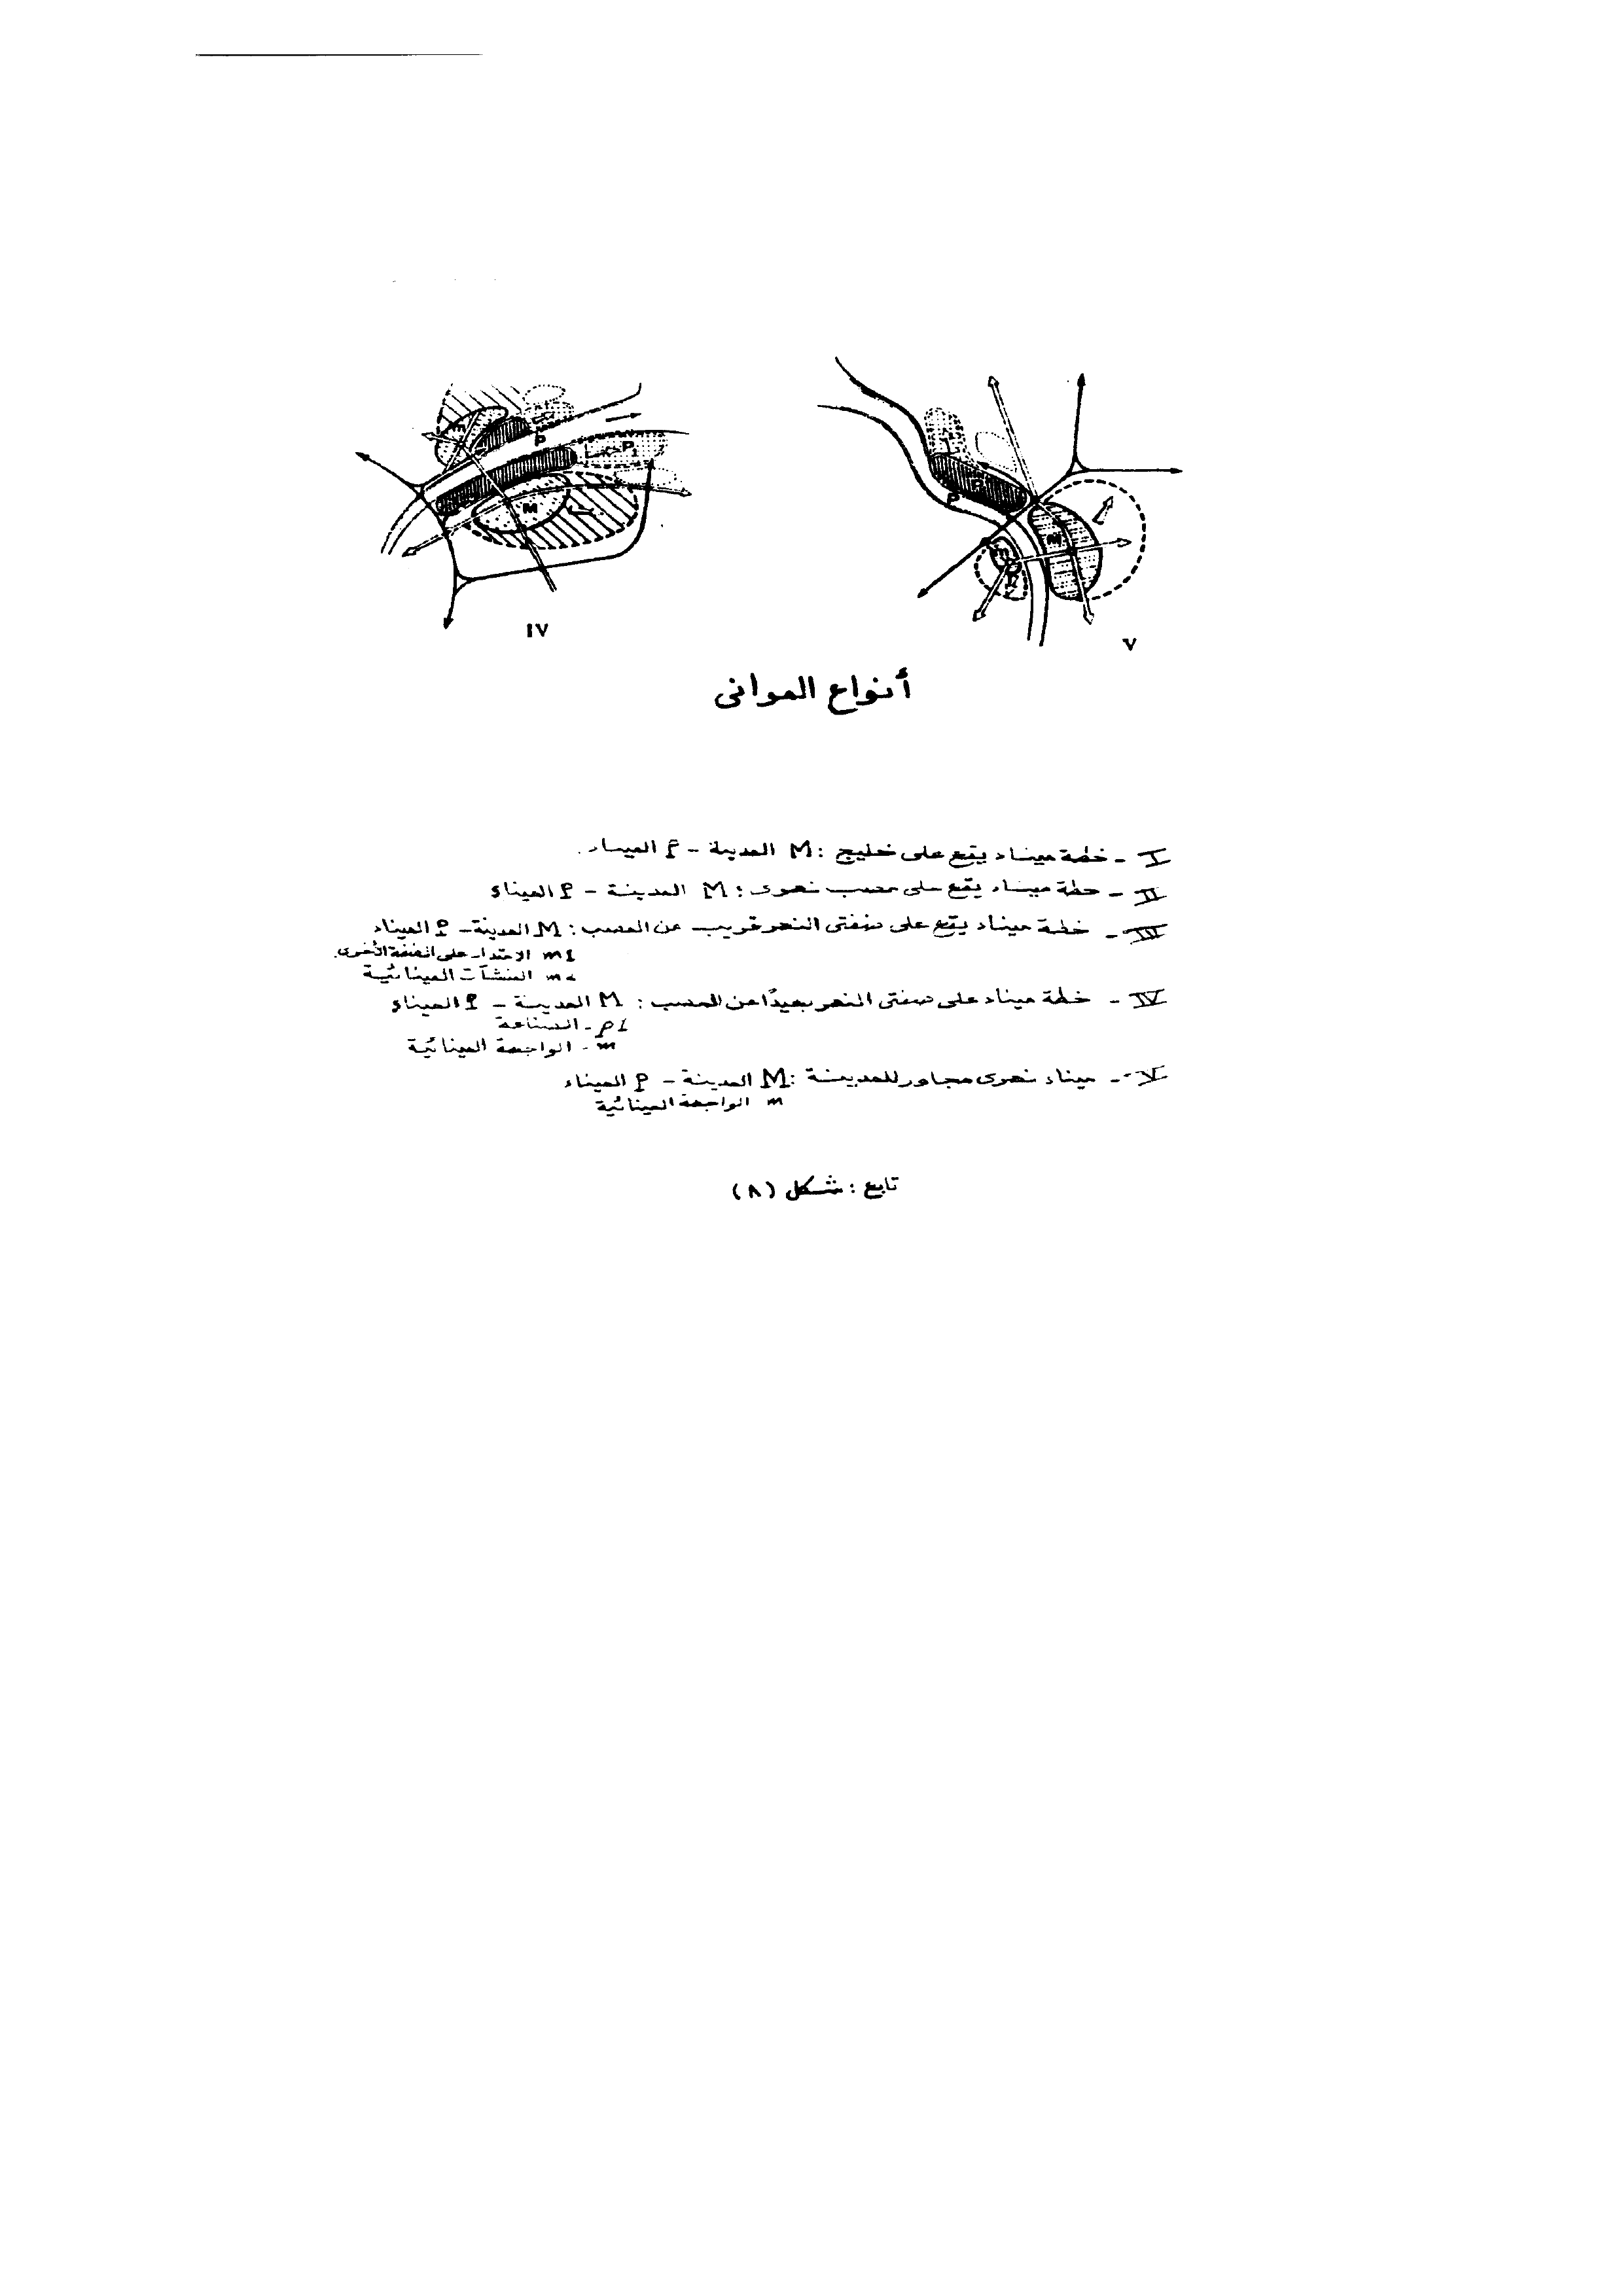 m
P
P
P1
M
IV
P
P
M
m
V
أنواع الموانى
I - خطة ميناء يقع على خليج : M المدينة - P الميناء
II - خطة ميناء يقع على مصب نهرى : M المدينة - P الميناء
III - خطة ميناء يقع على ضفتى النهر قريب عن المصب : M المدينة - P الميناء
m1 الامتداد على الضفة الأخرى
m2 المنشآت المينائية
IV - خطة ميناء على ضفتى النهر بعيدًا عن المصب : M المدينة - P الميناء
p1 - الصناعة
m - الواجهة المينائية
V - ميناء نهرى مجاور للمدينة : M المدينة - P الميناء
m الواجهة المينائية
تابع : شكل (٨)